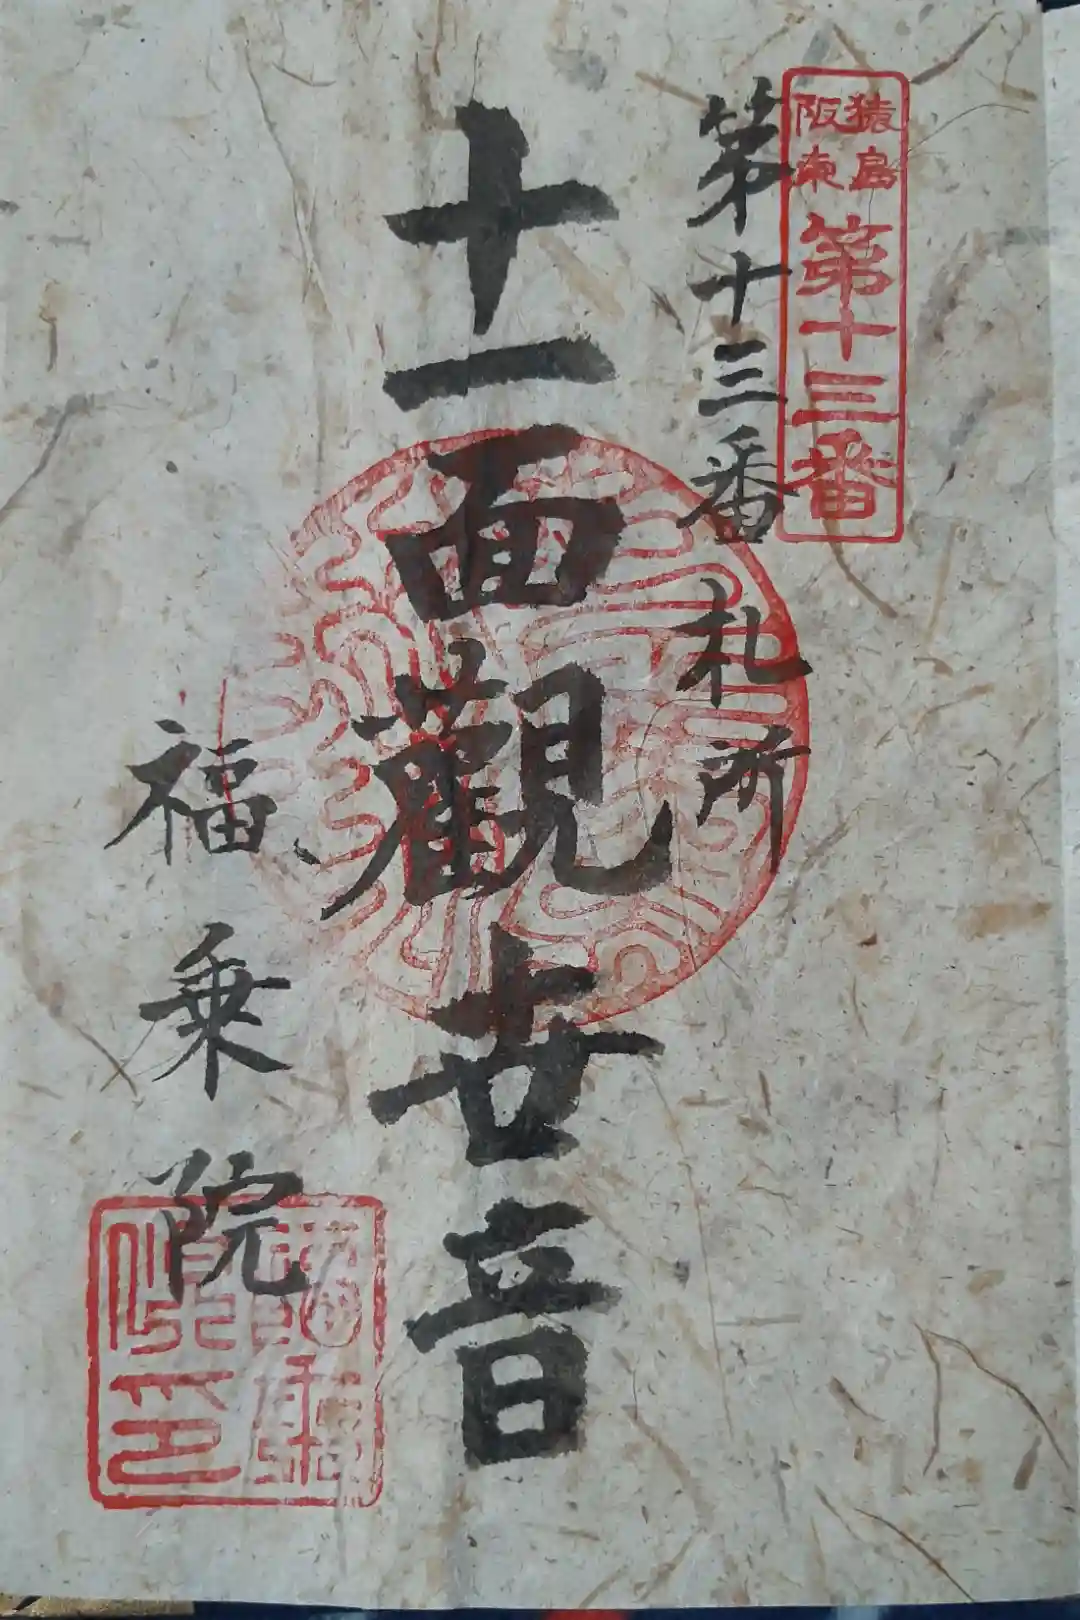 猿島
阪東
第十三番
第十三番札所
十一面觀世音
福乗院
福乗
院印